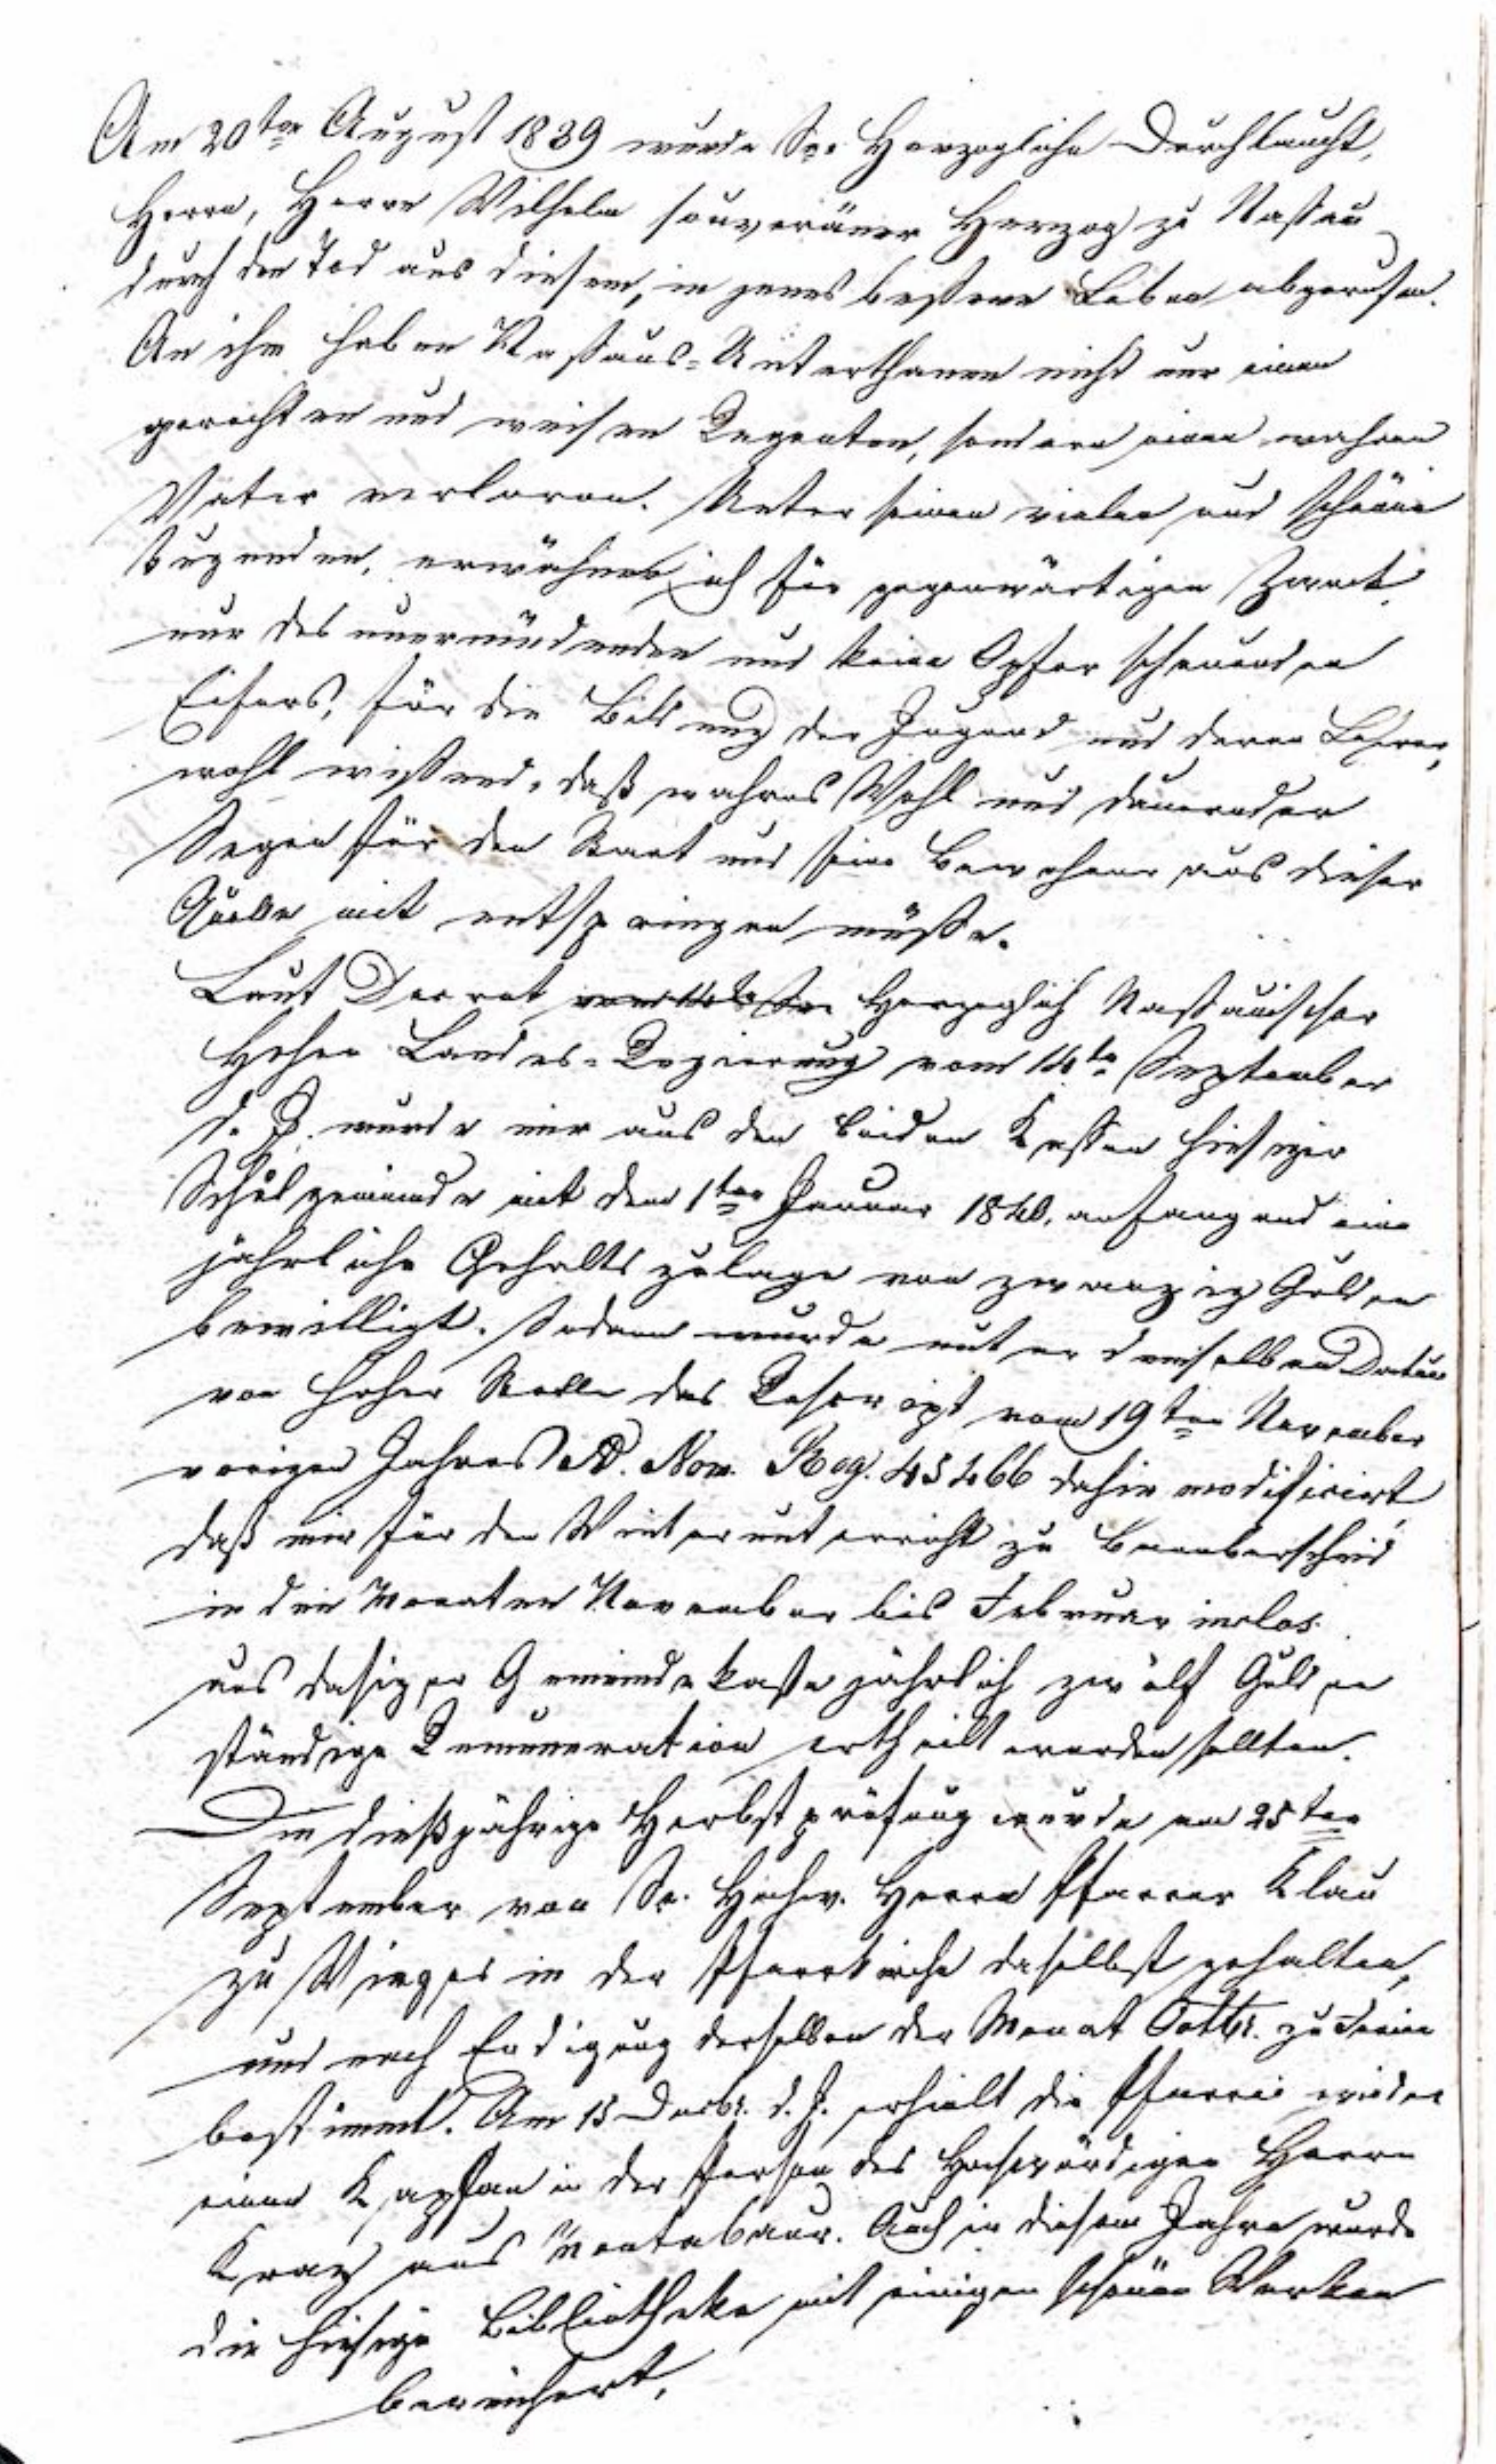 Am 20ten August 1839 wurde Se. Herzogliche Durchlaucht,
Herrn, Herrn Wilhelm souveräner Herzog zu Naßau
durch den Tod aus diesem, in jenes beßere Leben abgerufen.
An ihm haben Naßaus-Unterthanen nicht nur einen
gerechten und weisen Regenten, sondern einen wahren
Vater verloren. Unter seinen vielen und schönen
Tugenden, erwähne ich für gegenwärtigen Zweck
nur des unermüdenden und keine Opfer scheuenden
Eifers, für die Bildung der Jugend und deren Lehrer,
wohl wißend, daß wahres Wohl und dauernder
Segen für den Staat und seine Bewohner aus dieser
Quelle mit entspringen müße.
Laut Decret Herzoglich Naßauischer
Hoher Landes-Regierung vom 14te September
d. J. wurde mir aus den beiden Kaßen hiesiger
Schulgemeinde mit dem 1ten Januar 1840, anfangend eine
jährliche Gehaltszulage von zwanzig Gulden
bewilligt. Sodann wurde unter demselben Datum
von hoher Stelle das Rescript vom 19ten November
vorigen Jahres Ad. Num. Reg. 45466 dahin modificirt,
daß mir für den Winterunterricht zu
in den Monaten November bis Februar inclus.
aus dasiger Gemeindekaße jährlich zwölf Gulden
ständige Remuneration ertheilt werden sollten.
Die dießjährige Herbstprüfung wurde am 25ten
September von Sr. Hochw. Herrn Pfarrer Klau
zu Wirges in der Pfarrkirche daselbst gehalten,
und nach Endigung derselben der Monat Octbr. zu Ferien
bestimmt. Am 15 Decbr. d. J. erhielt die Pfarrei wieder
einen Kaplan in der Person des Hochwürdigen Herrn
aus Montabaur. Auch in diesem Jahre wurde
die hiesige Bibliotheke mit einigen schönen Werken
bereichert.